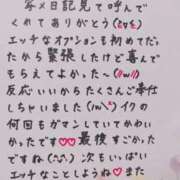 写メ日記見て呼んで
くれてありがとう(≧ε≦)
エッチなオプションも初めてだっ
たから緊張したけど喜んで
もらえてよかった(//ω//)
反応いいからたくさんご奉仕
しちゃいました(//∀\\)イク
の何回もガマンしていてかわい
かったです♡♡最後すごかっ
たですね(^-^;)次もいっぱい
エッチなことしようね♡また